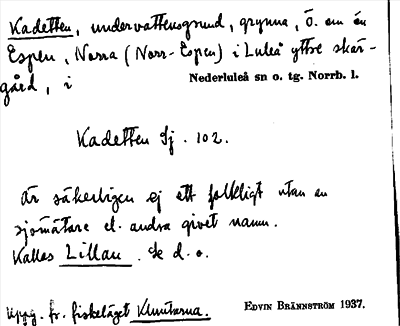 Kadetten, undervattensgrund, grynna, Ö. om ön
Espen, Norra (Norr-Espen) i Luleå yttre skär-
gård, i Nederluleå sn o. tg. Norrb. l.
Kadetten Sj. 102.
Är säkerligen ej ett folkligt utan en
sjömätare el. andra givet namn.
Kallas Lillau. Se d. o.
Uppg. fr. fiskeläget Klubbarna.
EDVIN BRÄNNSTRÖM 1937.